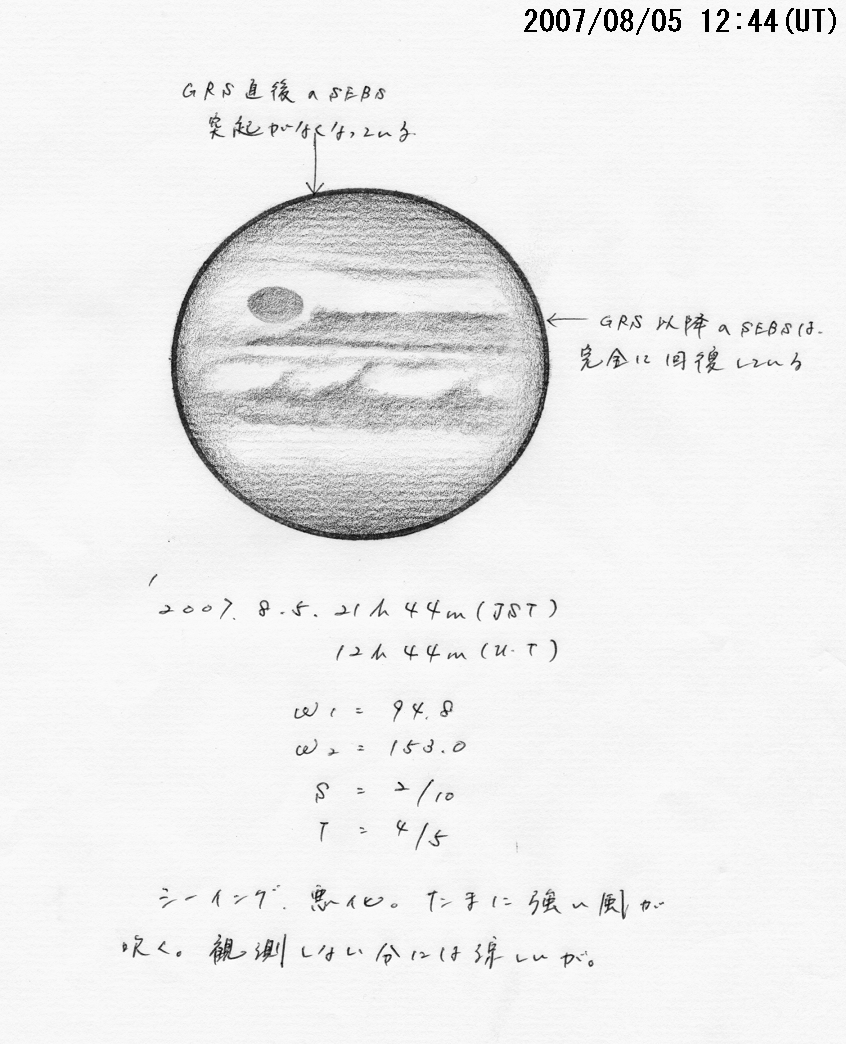 2007/08/05 12:44(UT)
GRS直後のSEBS
突起がなくなっている
GRS以降のSEBSは、
完全に回復している
2007. 8. 5. 21h 44m (JST)
12h 44m (U.T)
ω1 = 94.8
ω2 = 153.0
S = 2/10
T = 4/5
シーイング、悪化。たまに強い風が
吹く。観測しない分には涼しいが。